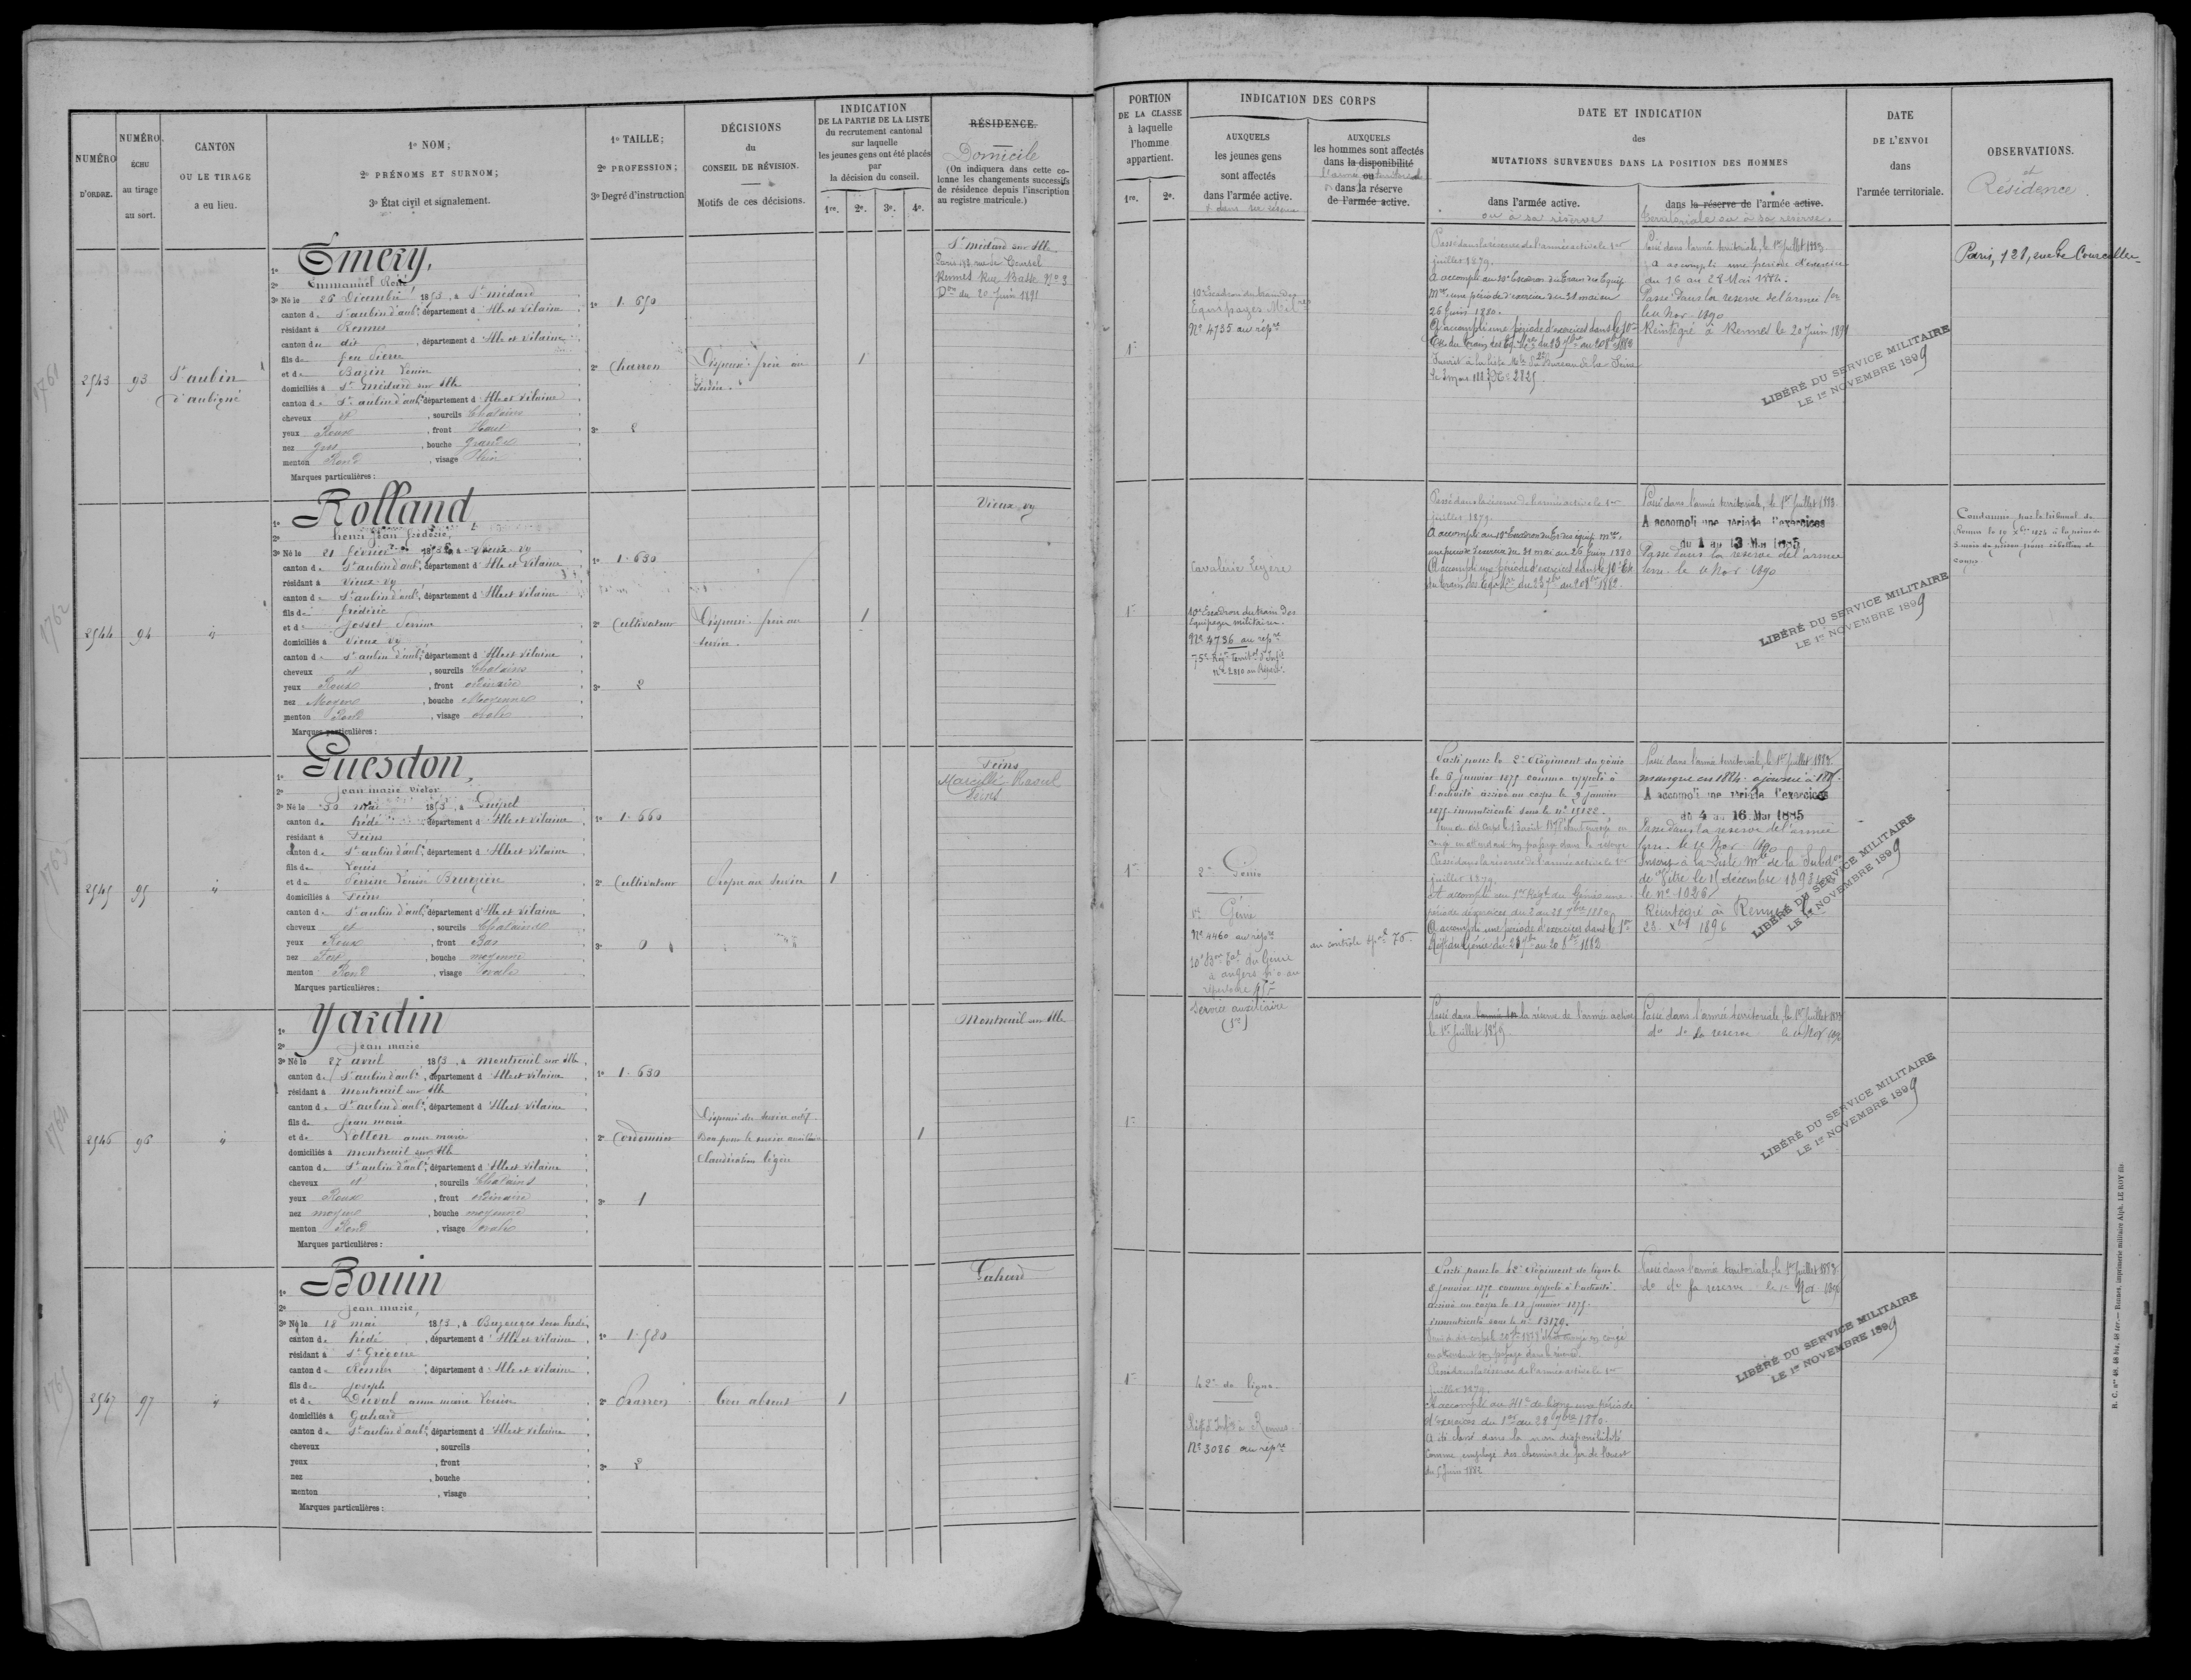 NUMÉRO
D'ORDRE.
NUMÉRO
ÉCHU
au tirage
au sort.
CANTON
OU LE TIRAGE
a eu lieu.
1º NOM;
2º PRÉNOMS ET SURNOM;
3º État civil et signalement.
1º TAILLE;
2º PROFESSION;
3º Degré d'instruction
DÉCISIONS
du
CONSEIL DE RÉVISION.
Motifs de ces décisions.
INDICATION
DE LA PARTIE DE LA LISTE
du recrutement cantonal
sur laquelle
les jeunes gens ont été placés
par
la décision du conseil.
1re. 2e. 3e. 4e.
RÉSIDENCE.
Domicile
(On indiquera dans cette co-
lonne les changements successifs
de résidence depuis l'inscription
au registre matricule.)
1761
2543
93
St aubin
d'aubigné
1º Emery,
2º Emmanuel René
3º Né le 26 Décembre 1853, à St médard
canton d St aubin d'aubé, département d Ille et Vilaine
résidant à Rennes
canton du dit, département d Ille et Vilaine
fils de feu Pierre
et de Bazin Louise
domiciliés à St médard sur Ille
canton de St aubin d'aubé, département d Ille et Vilaine
cheveux et, sourcils Chatains
yeux Roux, front Haut
nez gros, bouche grande
menton Rond, visage Plein
Marques particulières :
1º 1.650
2º Charron
3º 2
Dispensé frère au
Service.
1
St médard sur Ille
Rennes Rue Basse Nº 3
Don du 20 Juin 1891
1762
2544
94
"
1º Rolland
2º henri Jean frédéric,
3º Né le 21 février 1853, à Vieux vy
canton d St aubin d'aubé, département d Ille et Vilaine
résidant à Vieux vy
canton de St aubin d'aubé, département d Ille et Vilaine
fils de frédéric
et de Josset Perrine
domiciliés à Vieux vy
canton de St aubin d'aubé, département d Ille et Vilaine
cheveux et, sourcils Chatains
yeux Roux, front ordinaire
nez Moyen, bouche Moyenne
menton Rond, visage ovale
Marques particulières :
1º 1.630
2º Cultivateur
3º 2
Dispensé frère au
service.
1
Vieux vy
1763
2545
95
"
1º Guesdon,
2º jean marie victor
3º Né le 30 mai 1853, à Guipel
canton de hédé, département d Ille et Vilaine
résidant à Feins
canton de St aubin d'aubé, département d Ille et Vilaine
fils de Louis
et de Perrine Louise
domiciliés à Feins
canton de St aubin d'aubé, département d Ille et Vilaine
cheveux et, sourcils Chatains
yeux Roux, front Bas
nez Fort, bouche moyenne
menton Rond, visage ovale
Marques particulières :
1º 1.660
2º Cultivateur
3º 0
Propre au service
1
Feins
Marcillé Raoul
Feins
1764
2546
96
"
1º Yardin
2º jean marie
3º Né le 27 avril 1853, à Montreuil sur Ille
canton de St aubin d'aubé, département d Ille et Vilaine
résidant à Montreuil sur Ille
canton de St aubin d'aubé, département d Ille et Vilaine
fils de jean marie
et de Lotton anne marie
domiciliés à Montreuil sur Ille
canton de St aubin d'aubé, département d Ille et Vilaine
cheveux et, sourcils Chatains
yeux Roux, front ordinaire
nez moyen, bouche moyenne
menton Rond, visage ovale
Marques particulières :
1º 1.630
2º Cordonnier
3º 1
Dispensé du service actif
Bon pour le service auxiliaire
Claudication légère
1
Montreuil sur Ille
1765
2547
97
"
1º Bouin
2º jean marie,
3º Né le 18 mai 1853, à Bazouges sous hédé,
canton de hédé, département d Ille et Vilaine
résidant à St Grégoire
canton de Rennes, département d Ille et Vilaine
fils de joseph
et de Duval anne marie Louise
domiciliés à Gahard
canton de St aubin d'aubé, département d Ille et Vilaine
cheveux, sourcils
yeux, front
nez, bouche
menton, visage
Marques particulières :
1º 1.580
2º Charron
3º 2
bon absent
1
Gahard
PORTION
DE LA CLASSE
à laquelle
l'homme
appartient.
1re. 2e.
INDICATION DES CORPS
AUXQUELS
les jeunes gens
sont affectés
dans l'armée active.
AUXQUELS
les hommes sont affectés
dans la disponibilité
ou
dans la réserve
de l'armée active.
DATE ET INDICATION
des
MUTATIONS SURVENUES DANS LA POSITION DES HOMMES
dans l'armée active.
ou à sa réserve
dans la réserve de l'armée active.
territoriale ou à sa réserve.
DATE
DE L'ENVOI
dans
l'armée territoriale.
OBSERVATIONS.
et
Résidence.
1re
10e Escadron du train des
Equipages Mres
Nº 4735 au répre
Passé dans la réserve de l'armée active le 1er
juillet 1879.
A accompli au 10e Escadron du Train des Equip.
Mres une période d'exercices du 31 mai au
26 Juin 1880.
A accompli une période d'exercices dans le 10e
Le 3 mars 1883 Nº 2825.
Passé dans l'armée territoriale, le 1er Juillet 1883.
a accompli une période d'exercices
du 16 au 28 Mai 1884.
Passé dans la réserve de l'armée terr
le 11 Nov 1890
Réintégré à Rennes le 20 Juin 1891
LIBÉRÉ DU SERVICE MILITAIRE
LE 1er NOVEMBRE 1899
Paris, 121, rue de Courcelles
1re
Cavalerie Légère
10e Escadron du train des
Equipages militaires.
Nº 4736 au répre
75e Régt territal d'Infie
nº 2810 au Répert.
Passé dans la réserve de l'armée active le 1er
juillet 1879.
A accompli au 10e Escadron du Tr. des équip. mres.
une période d'exercices du 31 mai au 26 Juin 1880
A accompli une période d'exercices dans le 10e Esc
Passé dans l'armée territoriale, le 1er Juillet 1883.
A accompli une période d'exercices
du 1 au 13 Mai 1885
Passé dans la réserve de l'armée
terre. le 11 Nov 1890
LIBÉRÉ DU SERVICE MILITAIRE
LE 1er NOVEMBRE 1899
Condamné par le tribunal de
1re
2e Génie
1er Génie
Nº 4460 au répre
au contrôle spal 76.
Parti pour le 2e Régiment du génie
le 6 janvier 1875 comme appelé à
l'activité arrivé au corps le 9 janvier
1875 immatriculé sous le nº 15122.
Passé dans la réserve de l'armée active le 1er
juillet 1879.
A accompli au 1er Régt du Génie une
période d'exercices du 2 au 28 7bre 1880.
A accompli une période d'exercices dans le 1er
Passé dans l'armée territoriale, le 1er Juillet 1883
manque en 1884. ajourné à 1885.
A accompli une période d'exercices
du 4 au 16 Mai 1885
Passé dans la réserve de l'armée
terre. le 11 Nov 1890
Inscrit à la Liste Mle de la Subdon
de Vitré le 11 décembre 1893
le nº 1026
Réintégré à Rennes le
28 Xbre 1896
LIBÉRÉ DU SERVICE MILITAIRE
LE 1er NOVEMBRE 1899
1re
Service auxiliaire
Passé dans la réserve de l'armée active
le 1er juillet 1879
Passé dans l'armée territoriale, le 1er Juillet 1883
do do la reserve le 11 Nov 1890
LIBÉRÉ DU SERVICE MILITAIRE
LE 1er NOVEMBRE 1899
1re
42e de ligne
Nº 3086 au répre
Parti pour le 42e Régiment de ligne le
8 janvier 1875 comme appelé à l'activité
arrivé au corps le 12 janvier 1875.
immatriculé sous le nº 13179.
Passé dans la réserve de l'armée active le 1er
juillet 1879.
A accompli au 41e de ligne une période
d'exercices du 1er au 28 7bre 1880.
A été classé dans la non disponibilité
comme employé des chemins de fer de l'ouest
du 5 Juin 1882
Passé dans l'armée territoriale, le 1er Juillet 1883.
do do sa reserve le 11 Nov 1890
LIBÉRÉ DU SERVICE MILITAIRE
LE 1er NOVEMBRE 1899